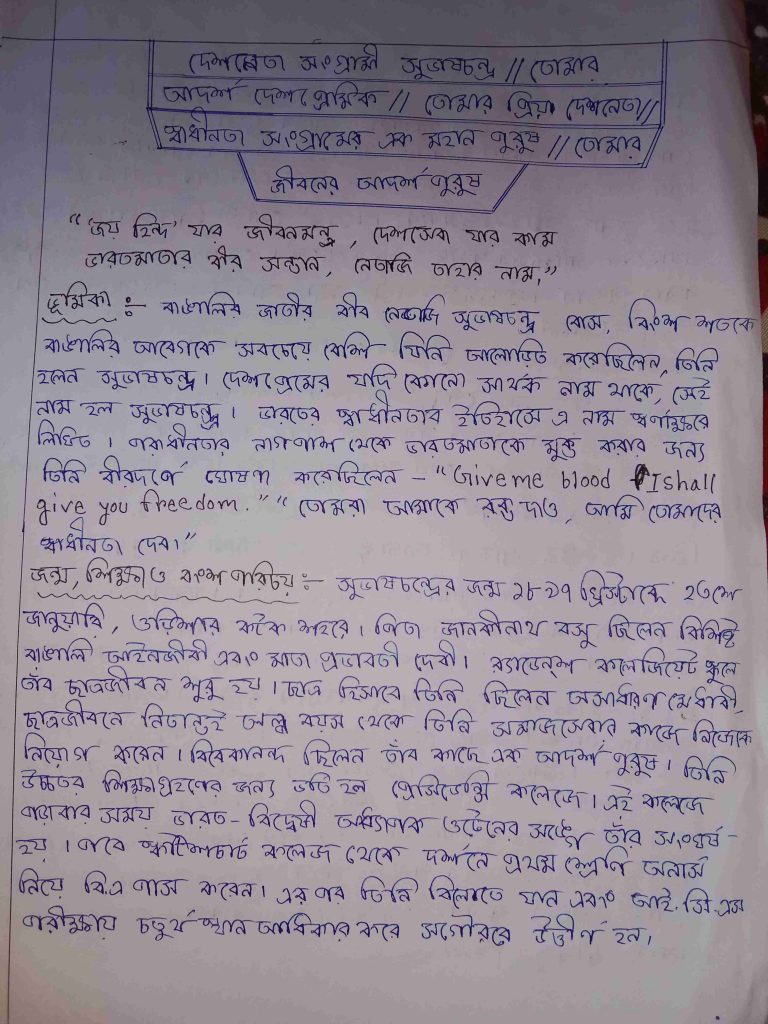 দেশনেতা সংগ্রামী সুভাষচন্দ্র // তোমার
আদর্শ দেশপ্রেমিক // তোমার প্রিয় দেশনেতা //
স্বাধীনতা সংগ্রামের এক মহান পুরুষ // তোমার
জীবনের আদর্শ পুরুষ
“ ‘জয় হিন্দ’ যার জীবনমন্ত্র, দেশসেবা যার কাম
ভারতমাতার বীর সন্তান, নেতাজি তাহার নাম।”
ভূমিকা :- বাঙালির জাতীর বীর নেতাজি সুভাষচন্দ্র বোস, বিংশ শতকে
বাঙালির আবেগকে সবচেয়ে বেশি যিনি আলোড়িত করেছিলেন, তিনি
হলেন সুভাষচন্দ্র। দেশপ্রেমের যদি কোনো সার্থক নাম থাকে, সেই
নাম হল সুভাষচন্দ্র। ভারতের স্বাধীনতার ইতিহাসে এ নাম স্বর্ণাক্ষরে
লিখিত। পরাধীনতার নাগপাশ থেকে ভারতমাতাকে মুক্ত করার জন্য
তিনি বীরদর্পে ঘোষণা করেছিলেন – “Give me blood I shall
give you freedom.” “তোমরা আমাকে রক্ত দাও, আমি তোমাদের
স্বাধীনতা দেব।”
জন্ম, শিক্ষা ও বংশ পরিচয় :- সুভাষচন্দ্রের জন্ম ১৮৯৭ খ্রিস্টাব্দে ২৩শে
জানুয়ারি, ওড়িশার কটক শহরে। পিতা জানকীনাথ বসু ছিলেন বিশিষ্ট
বাঙালি আইনজীবী এবং মাতা প্রভাবতী দেবী। র‍্যাভেনশ কলেজিয়েট স্কুলে
তাঁর ছাত্রজীবন শুরু হয়। ছাত্র হিসাবে তিনি ছিলেন অসাধারণ মেধাবী,
ছাত্রজীবনে নিতান্তই অল্প বয়স থেকে তিনি সমাজসেবার কাজে নিজেকে
নিয়োগ করেন। বিবেকানন্দ ছিলেন তাঁর কাছে এক আদর্শ পুরুষ। তিনি
উচ্চতর শিক্ষাগ্রহণের জন্য ভর্তি হন প্রেসিডেন্সি কলেজে। এই কলেজে
পড়াবার সময় ভারত-বিদ্বেষী অধ্যাপক ওটেনের সঙ্গে তাঁর সংঘর্ষ
হয়। পরে স্কটিশচার্চ কলেজ থেকে দর্শনে প্রথম শ্রেণি অনার্স
নিয়ে বি.এ পাস করেন। এরপর তিনি বিলেতে যান এবং আই.সি.এস
পরীক্ষায় চতুর্থ স্থান অধিকার করে সগৌরবে উত্তীর্ণ হন।